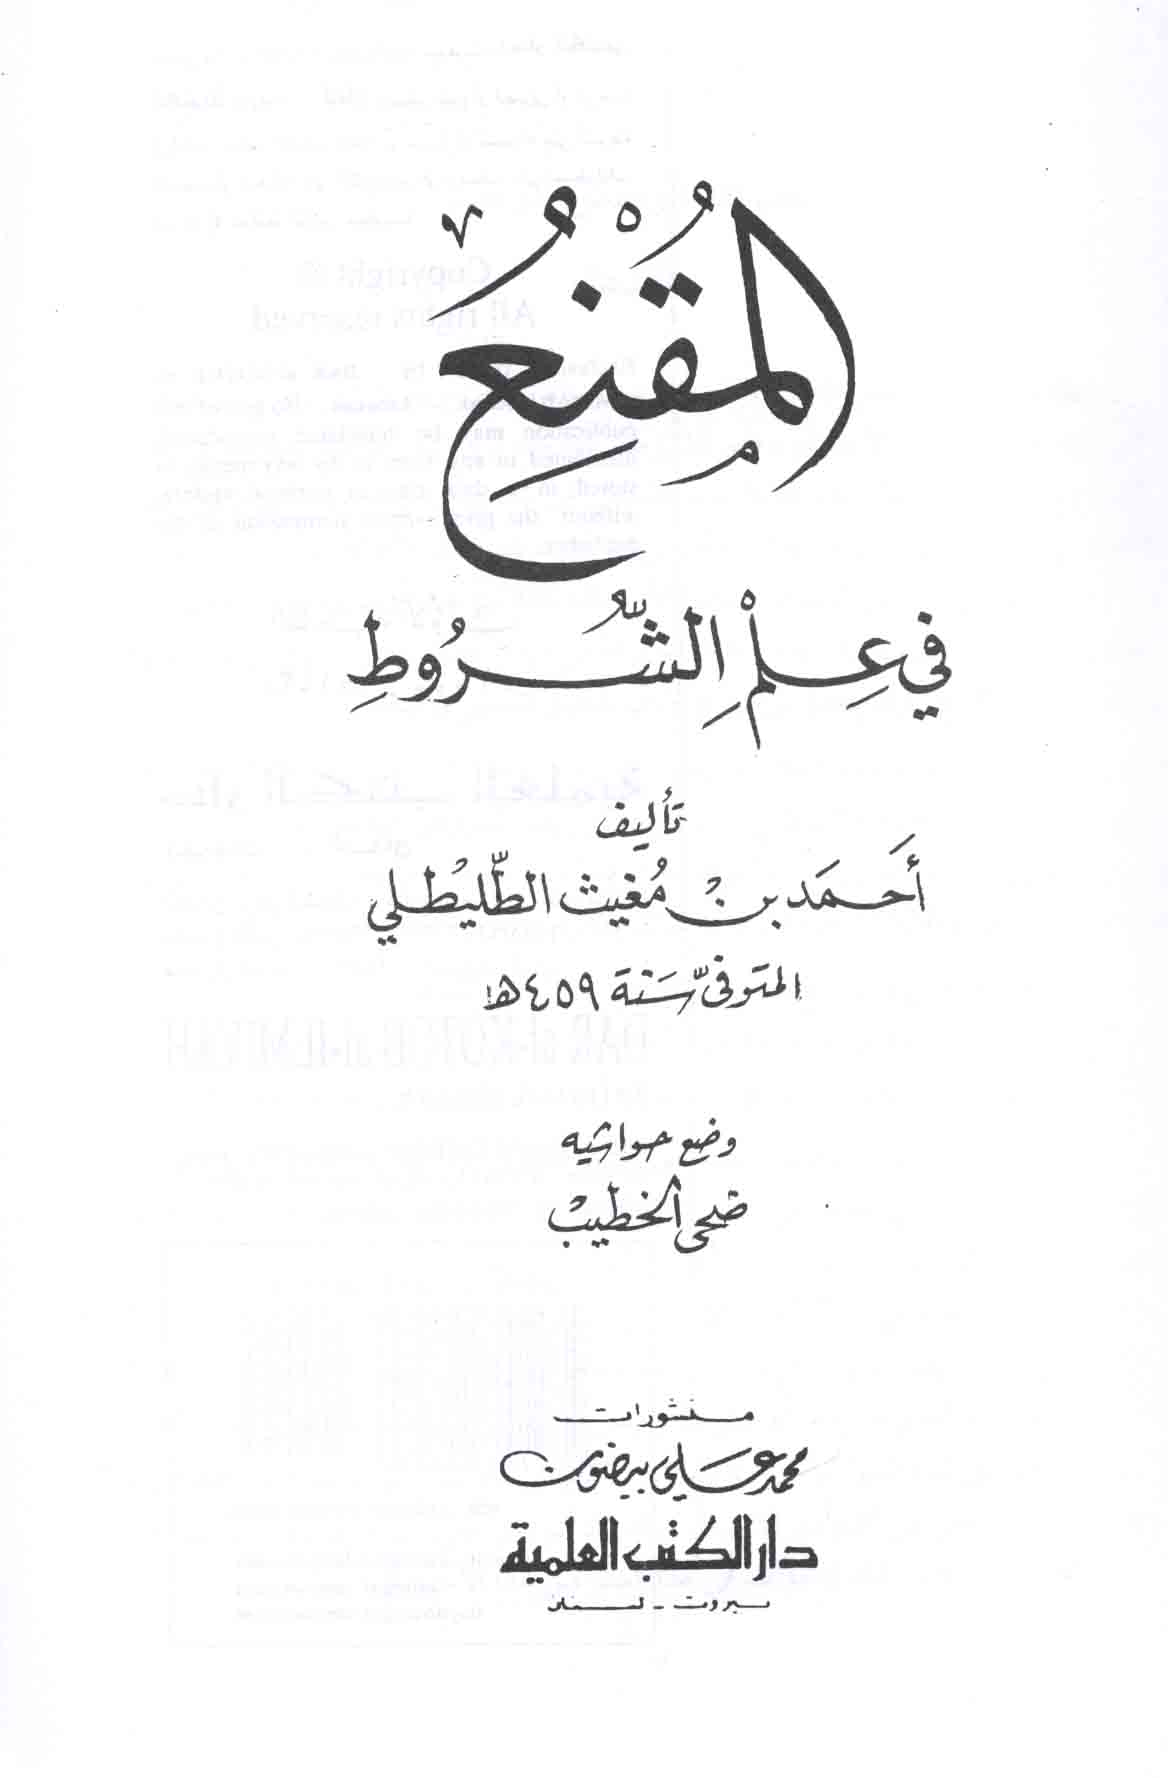 المُقْنِعُ
في عِلْمِ الشُّرُوطِ
تأليف
أَحمَد بنْ مُغيث الطُّليْطلي
المتوفىّ سَنة ٤٥٩ھ
وضع حواشيه
ضحى الخطيبْ
منشورات
محمد عَلي بيضون
دار الكتب العلمية
بيروت - لبنان